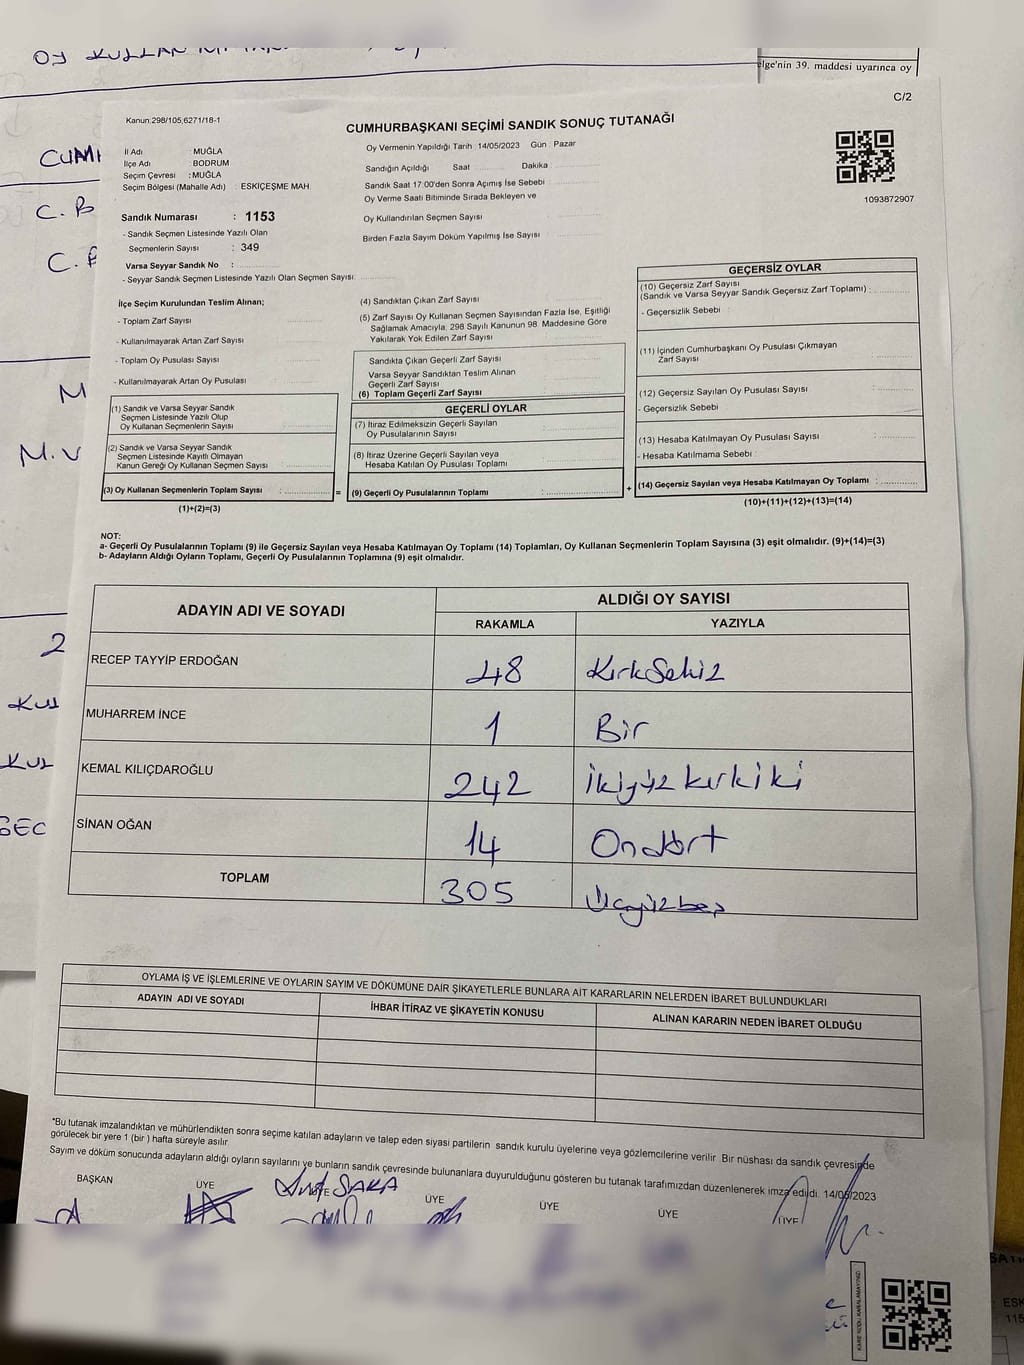 elge'nin 39. maddesi uyarınca oy
C/2
Kanun:298/105,6271/18-1
CUMHURBAŞKANI SEÇİMİ SANDIK SONUÇ TUTANAĞI
İl Adı : MUĞLA
İlçe Adı : BODRUM
Seçim Çevresi : MUĞLA
Seçim Bölgesi (Mahalle Adı) : ESKİÇEŞME MAH.
Sandık Numarası : 1153
- Sandık Seçmen Listesinde Yazılı Olan
Seçmenlerin Sayısı : 349
Varsa Seyyar Sandık No :
- Seyyar Sandık Seçmen Listesinde Yazılı Olan Seçmen Sayısı:
Oy Vermenin Yapıldığı Tarih : 14/05/2023 Gün : Pazar
Sandığın Açıldığı Saat Dakika
Sandık Saat 17:00'den Sonra Açımış İse Sebebi
Oy Verme Saati Bitiminde Sırada Bekleyen ve
Oy Kullandırılan Seçmen Sayısı
Birden Fazla Sayım Döküm Yapılmış İse Sayısı
1093872907
İlçe Seçim Kurulundan Teslim Alınan;
- Toplam Zarf Sayısı
- Kullanılmayarak Artan Zarf Sayısı
- Toplam Oy Pusulası Sayısı
- Kullanılmayarak Artan Oy Pusulası
(1) Sandık ve Varsa Seyyar Sandık
Seçmen Listesinde Yazılı Olup
Oy Kullanan Seçmenlerin Sayısı
(2) Sandık ve Varsa Seyyar Sandık
Seçmen Listesinde Kayıtlı Olmayan
Kanun Gereği Oy Kullanan Seçmen Sayısı
(3) Oy Kullanan Seçmenlerin Toplam Sayısı :
(1)+(2)=(3)
(4) Sandıktan Çıkan Zarf Sayısı
(5) Zarf Sayısı Oy Kullanan Seçmen Sayısından Fazla İse, Eşitliği
Sağlamak Amacıyla, 298 Sayılı Kanunun 98. Maddesine Göre
Yakılarak Yok Edilen Zarf Sayısı
Sandıkta Çıkan Geçerli Zarf Sayısı
Varsa Seyyar Sandıktan Teslim Alınan
Geçerli Zarf Sayısı
(6) Toplam Geçerli Zarf Sayısı
GEÇERLİ OYLAR
(7) İtiraz Edilmeksizin Geçerli Sayılan
Oy Pusulalarının Sayısı
(8) İtiraz Üzerine Geçerli Sayılan veya
Hesaba Katılan Oy Pusulası Toplamı
= (9) Geçerli Oy Pusulalarının Toplamı :
GEÇERSİZ OYLAR
(10) Geçersiz Zarf Sayısı
(Sandık ve Varsa Seyyar Sandık Geçersiz Zarf Toplamı) :
- Geçersizlik Sebebi :
(11) İçinden Cumhurbaşkanı Oy Pusulası Çıkmayan
Zarf Sayısı :
(12) Geçersiz Sayılan Oy Pusulası Sayısı :
- Geçersizlik Sebebi
(13) Hesaba Katılmayan Oy Pusulası Sayısı :
- Hesaba Katılmama Sebebi :
+ (14) Geçersiz Sayılan veya Hesaba Katılmayan Oy Toplamı :
(10)+(11)+(12)+(13)=(14)
NOT:
a- Geçerli Oy Pusulalarının Toplamı (9) ile Geçersiz Sayılan veya Hesaba Katılmayan Oy Toplamı (14) Toplamları, Oy Kullanan Seçmenlerin Toplam Sayısına (3) eşit olmalıdır. (9)+(14)=(3)
b- Adayların Aldığı Oyların Toplamı, Geçerli Oy Pusulalarının Toplamına (9) eşit olmalıdır.
ADAYIN ADI VE SOYADI ALDIĞI OY SAYISI
RAKAMLA YAZIYLA
RECEP TAYYİP ERDOĞAN 48 KırkSekiz
MUHARREM İNCE 1 Bir
KEMAL KILIÇDAROĞLU 242 İkiyüz kırk iki
SİNAN OĞAN 14 Ondört
TOPLAM 305 Üçyüzbeş
OYLAMA İŞ VE İŞLEMLERİNE VE OYLARIN SAYIM VE DÖKÜMÜNE DAİR ŞİKAYETLERLE BUNLARA AİT KARARLARIN NELERDEN İBARET BULUNDUKLARI
ADAYIN ADI VE SOYADI İHBAR İTİRAZ VE ŞİKAYETİN KONUSU ALINAN KARARIN NEDEN İBARET OLDUĞU
*Bu tutanak imzalandıktan ve mühürlendikten sonra seçime katılan adayların ve talep eden siyasi partilerin sandık kurulu üyelerine veya gözlemcilerine verilir Bir nüshası da sandık çevresinde
görülecek bir yere 1 (bir ) hafta süreyle asılır
Sayım ve döküm sonucunda adayların aldığı oyların sayılarını ve bunların sandık çevresinde bulunanlara duyurulduğunu gösteren bu tutanak tarafımızdan düzenlenerek imza edildi. 14/05/2023
BAŞKAN ÜYE SAKA ÜYE ÜYE ÜYE ÜYE